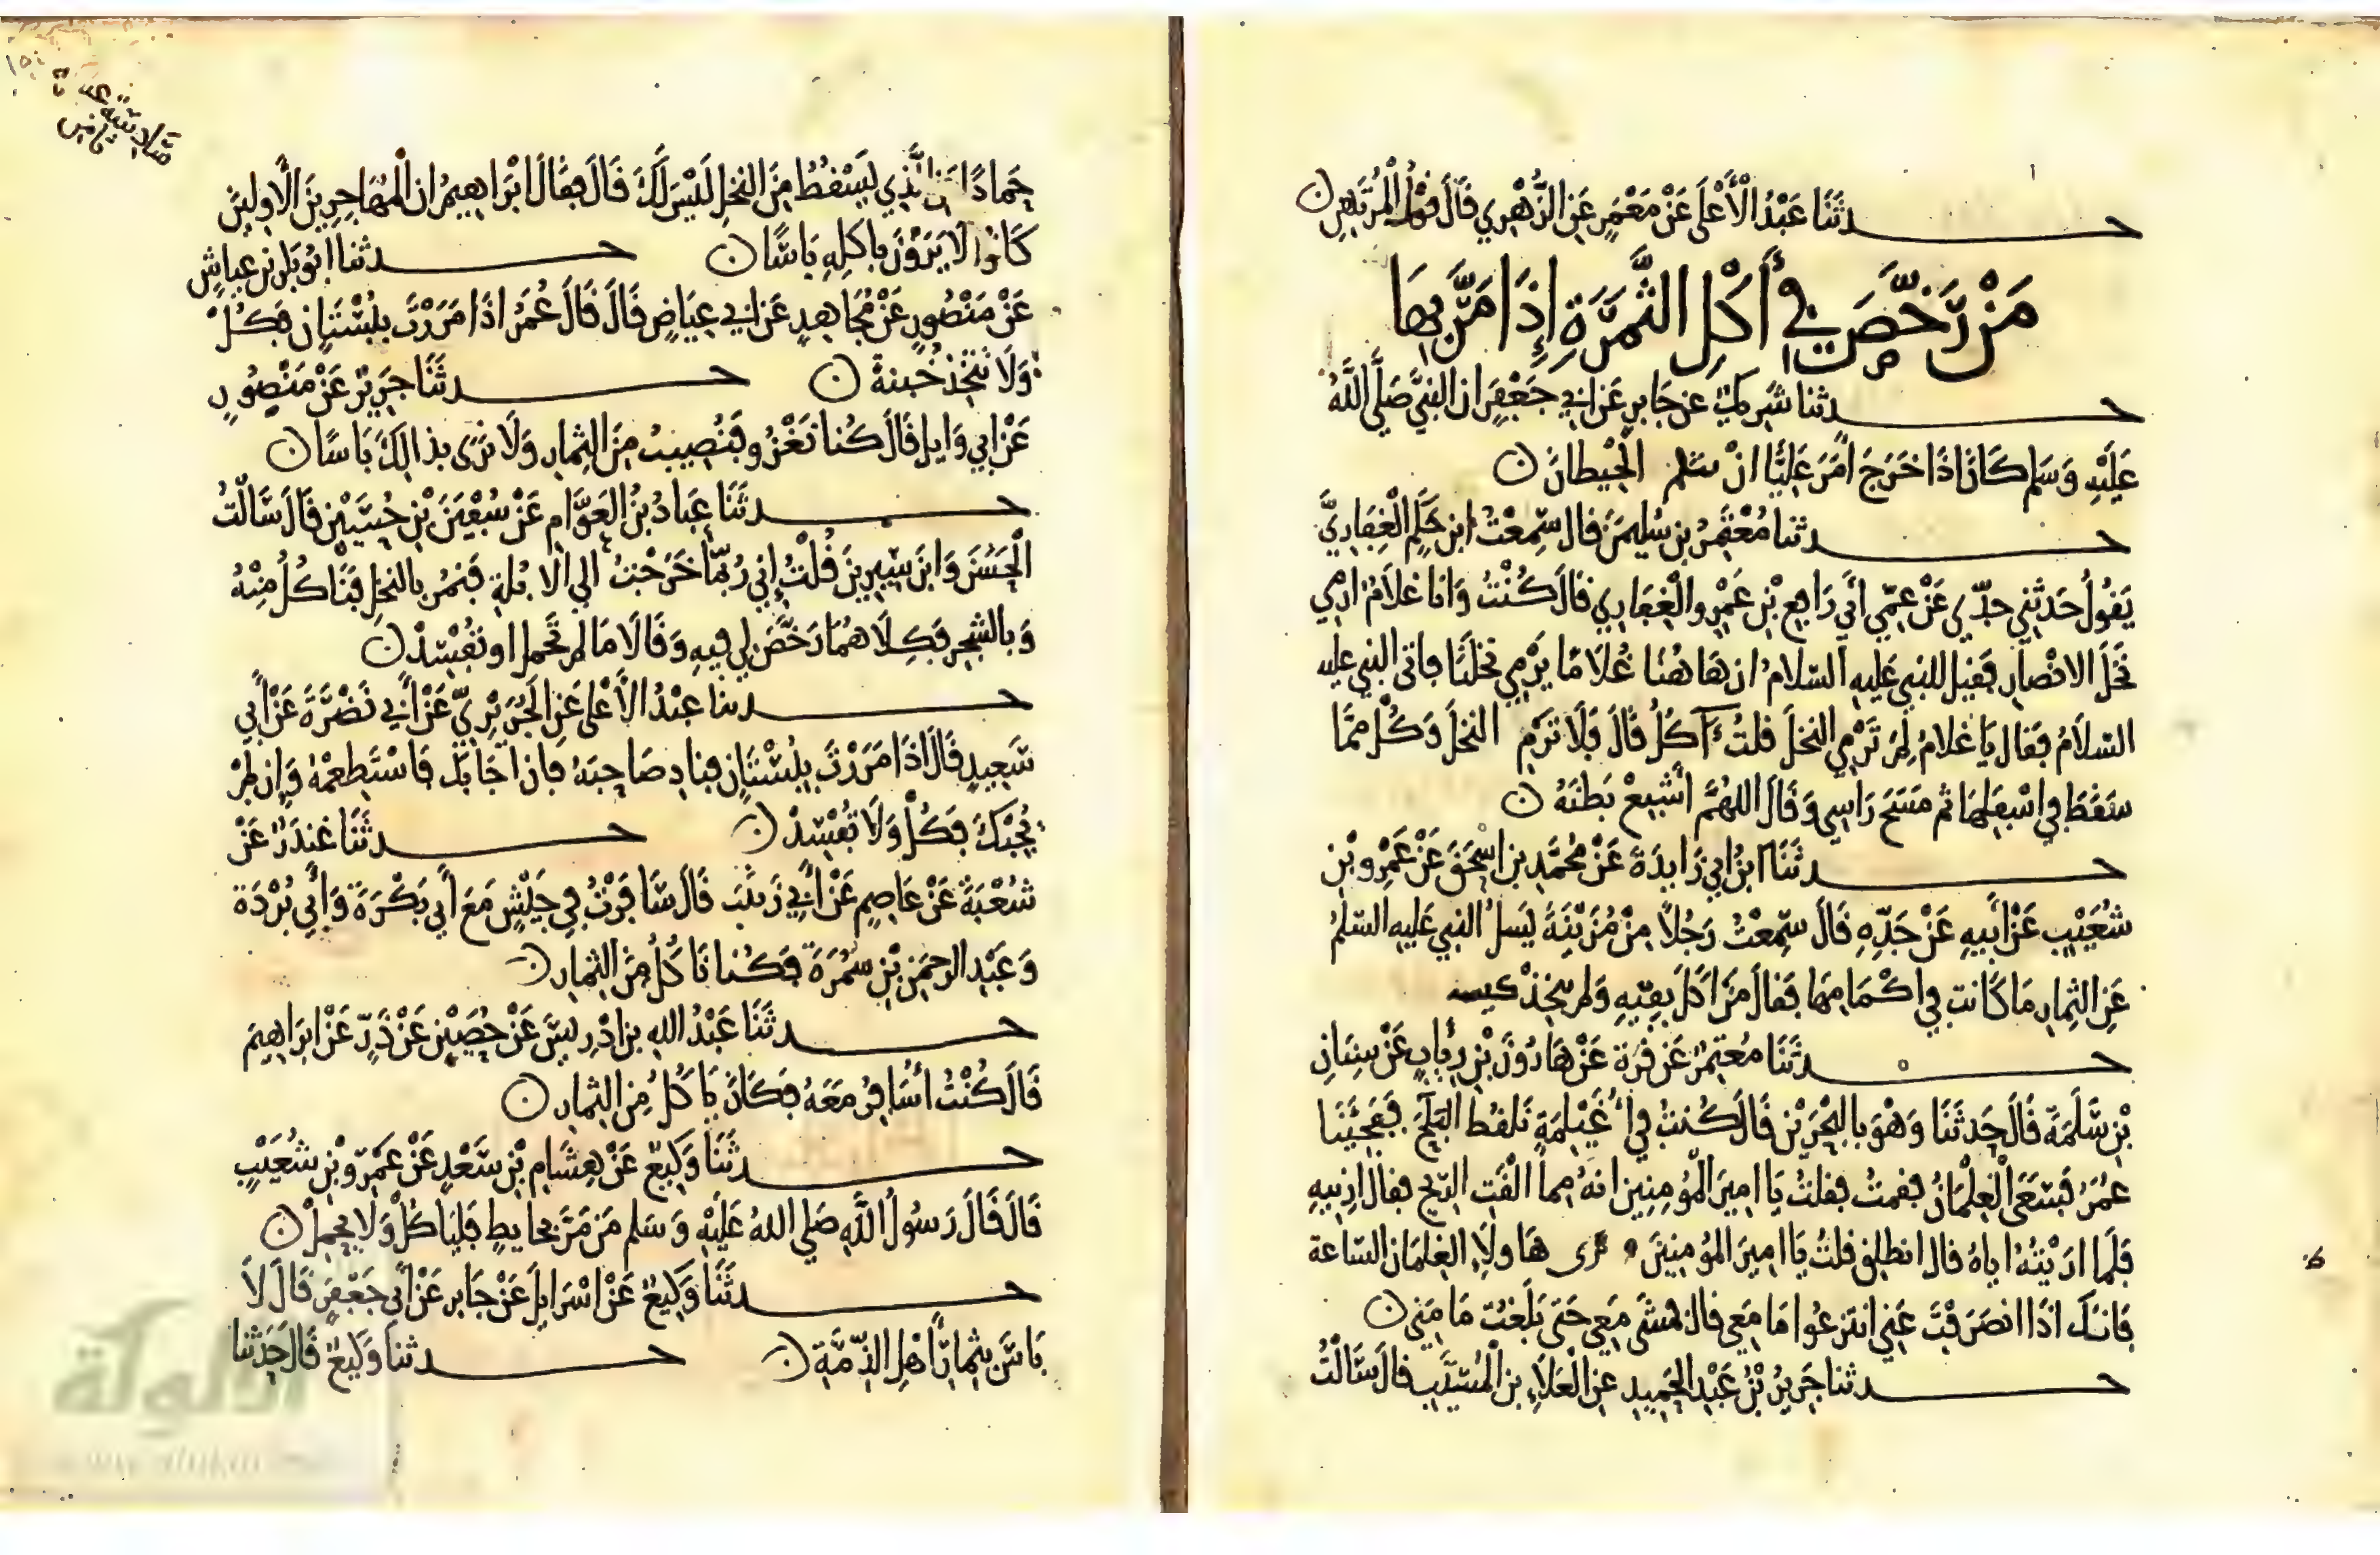 حدثنا عبد الأعلى عن معمر عن الزهري قال قول المرتهن
من رخص في أكل الثمرة إذا مر بها
حدثنا شريك عن جابر عن ابي جعفر ان النبي صلى الله
عليه وسلم كان اذا خرج امر عليا ان سلم الحيطان
حدثنا معتمر بن سليمن قال سمعت ابن حكم الغفاري
يقول حدثني جدتي عن عمي أبي رابع بن عمرو الغفاري قال كنت وانا غلام ارمي
نخل الانصار فقيل للنبي عليه السلام ان هاهنا غلاما يرمي نخلنا فاتى النبي عليه
السلام فقال يا غلام لم ترمي النخل قلت ءآكل قال فلا ترم النخل وكل مما
سقط في اسفلها ثم مسح راسي وقال اللهم أشبع بطنه
حدثنا ابن ابي زايدة عن محمد بن اسحق عن عمرو بن
شعيب عن أبيه عن جده قال سمعت رجلا من مزينة يسل النبي عليه السلم
عن الثمار ما كانت في اكمامها فقال من اكل بفيه ولم يتخذ خبنة
حدثنا معتمر عن قرة عن هارون بن رئاب عن سنان
بن سلمة قال حدثنا وهو بالبحرين قال كنت في أغيلمة نلقط البلح ففجئنا
عمر فسعى الغلمان فقمت فقلت يا امير المؤمنين انه مما القت الريح فقال ارنيه
فلما اريته اياه قال انطلق قلت يا امير المؤمنين ترى هاولاء الغلمان الساعة
فانك اذا انصرفت عني انتزعوا ما معي قال فمشى معي حتى بلغت مامني
حدثنا جرير بن عبد الحميد عن العلاء بن المسيب قال سالت
حمادا عن الذي يسقط من النخل ليس لك قال فقال ابراهيم ان المهاجرين الاولين
كانوا لا يرون باكله باسا حدثنا ابو بكر بن عياش
عن منصور عن مجاهد عن ابي عياض قال قال عمر اذا مررت ببستان فكل
ولا تتخذ خبنة حدثنا جرير عن منصور
عن ابي وايل قال كنا نغزو فنصيب من الثمار ولا نرى بذالك باسا
حدثنا عباد بن العوام عن سفين بن حسين قال سالت
الحسن وابن سيرين قلت إني ربما خرجت الي الابلة فنمر بالنخل فناكل منه
وبالشجر فكلاهما رخص لي فيه وقالا ما لم تحمل او تفسد
حدثنا عبد الأعلى عن الجريري عن أبي نضرة عن أبي
سعيد قال اذا مررت ببستان فناد صاحبه فان اجابك فاستطعمه وإن لم
يجبك فكل ولا تفسد حدثنا غندر عن
شعبة عن عاصم عن أبي زينب قال سافرت في جيش مع أبي بكرة وأبي بردة
وعبد الرحمن بن سمرة فكنا ناكل من الثمار
حدثنا عبد الله بن ادريس عن حصين عن ذر عن ابراهيم
قال كنت أسافر معه فكان ياكل من الثمار
حدثنا وكيع عن هشام بن سعد عن عمرو بن شعيب
قال قال رسول الله صلي الله عليه وسلم من مر بحايط فلياكل ولا يحمل
حدثنا وكيع عن اسرايل عن جابر عن أبي جعفر قال لا
باس بثمار أهل الذمة حدثنا وكيع قال حدثنا
الألوكة